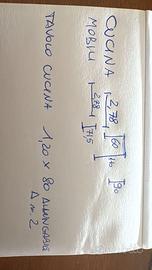 CUCINA 2,78 60 110 90
MOBILI 2,98 71,5
TAVOLO CUCINA 1,20 x 80 ALLUNGABILE
A m. 2